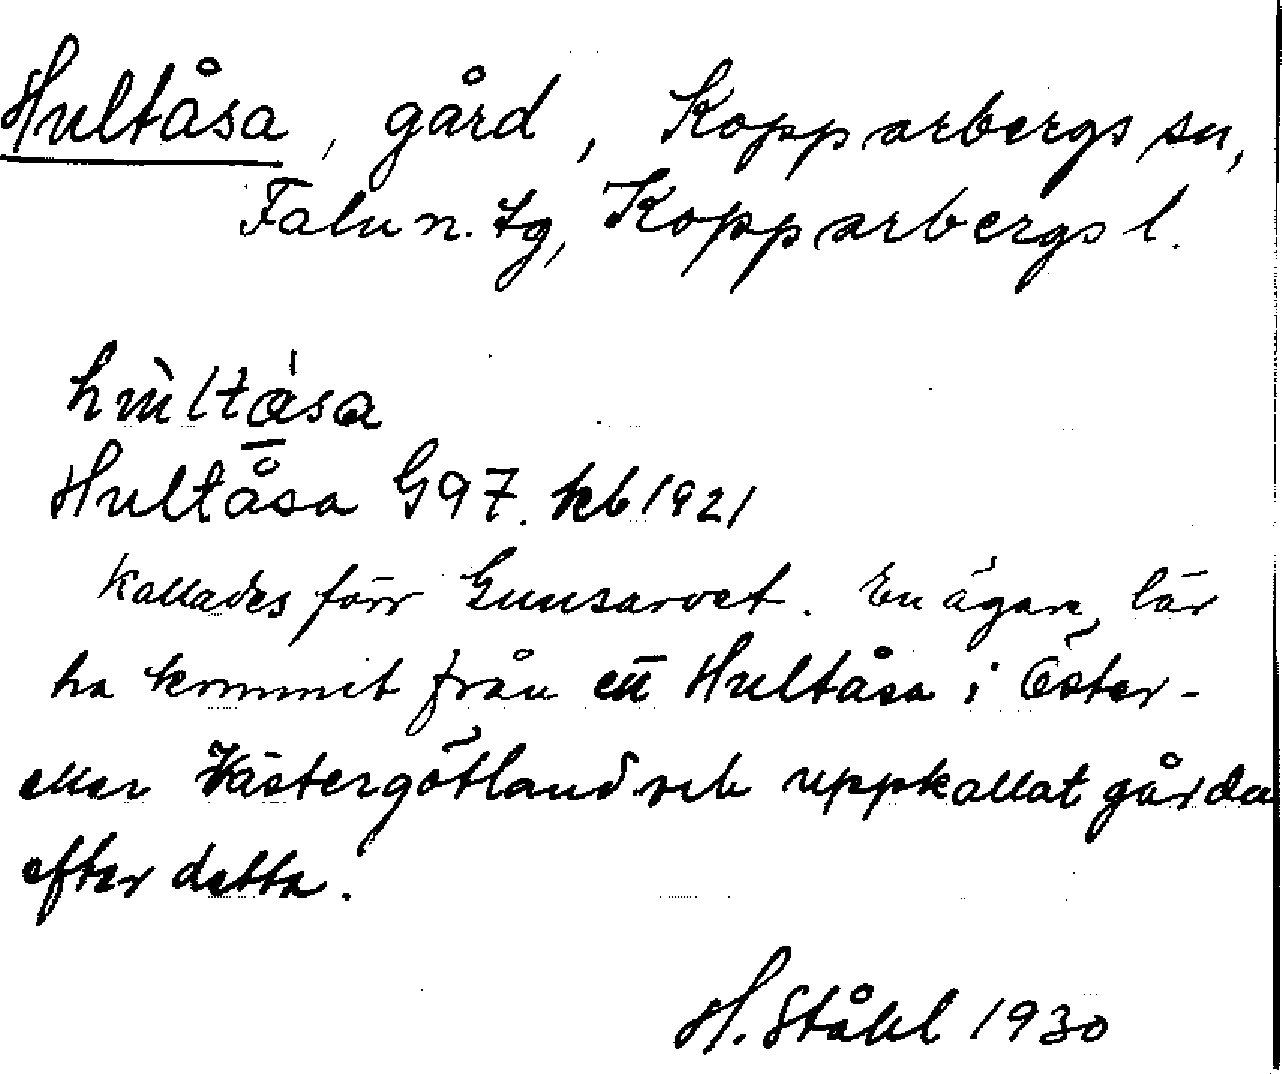 Hultåsa, gård, Kopparbergs sn,
Falu n. tg, Kopparbergs l.
Hultåsa G97. kb 1921
Kallades förr Gunsarvet. En ägare lär
ha kommit från ett Hultåsa i Öster-
eller Västergötland och uppkallat gården
efter detta.
H. Ståhl 1930